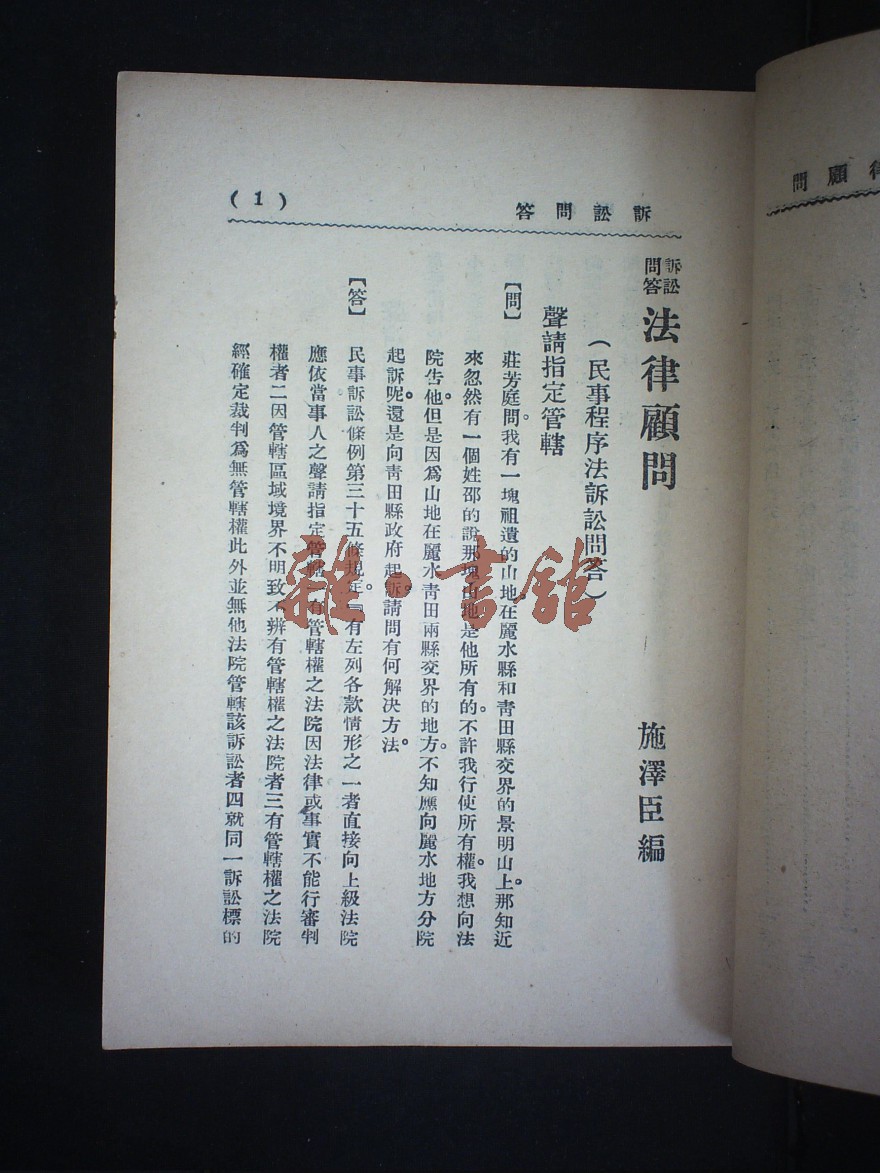 訴訟問答
(1)
訴訟問答 法律顧問 施澤臣編
(民事程序法訴訟問答)
聲請指定管轄
【問】 莊芳庭問。我有一塊祖遺的山地在麗水縣和青田縣交界的景明山上。那知近
來忽然有一個姓邵的說那塊山地是他所有的。不許我行使所有權。我想向法
院告他。但是因爲山地在麗水青田兩縣交界的地方。不知應向麗水地方分院
起訴呢。還是向青田縣政府起訴。請問有何解決方法。
【答】 民事訴訟條例第三十五條規定。『有左列各款情形之一者直接向上級法院
應依當事人之聲請指定管轄一有管轄權之法院因法律或事實不能行審判
權者二因管轄區域境界不明致不辨有管轄權之法院者三有管轄權之法院
經確定裁判爲無管轄權此外並無他法院管轄該訴訟者四就同一訴訟標的
律顧問
雜·書館